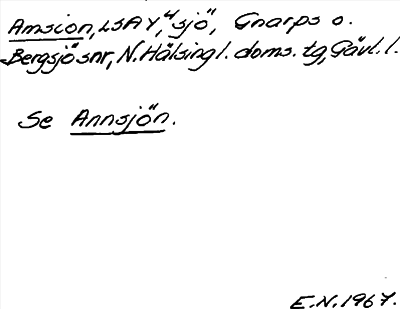 Amsion, LSAY, "sjö", Gnarps o.
Bergsjö snr, N. Hälsingl. doms. tg, Gävl. l.
Se Annsjön.
E.N. 1967.